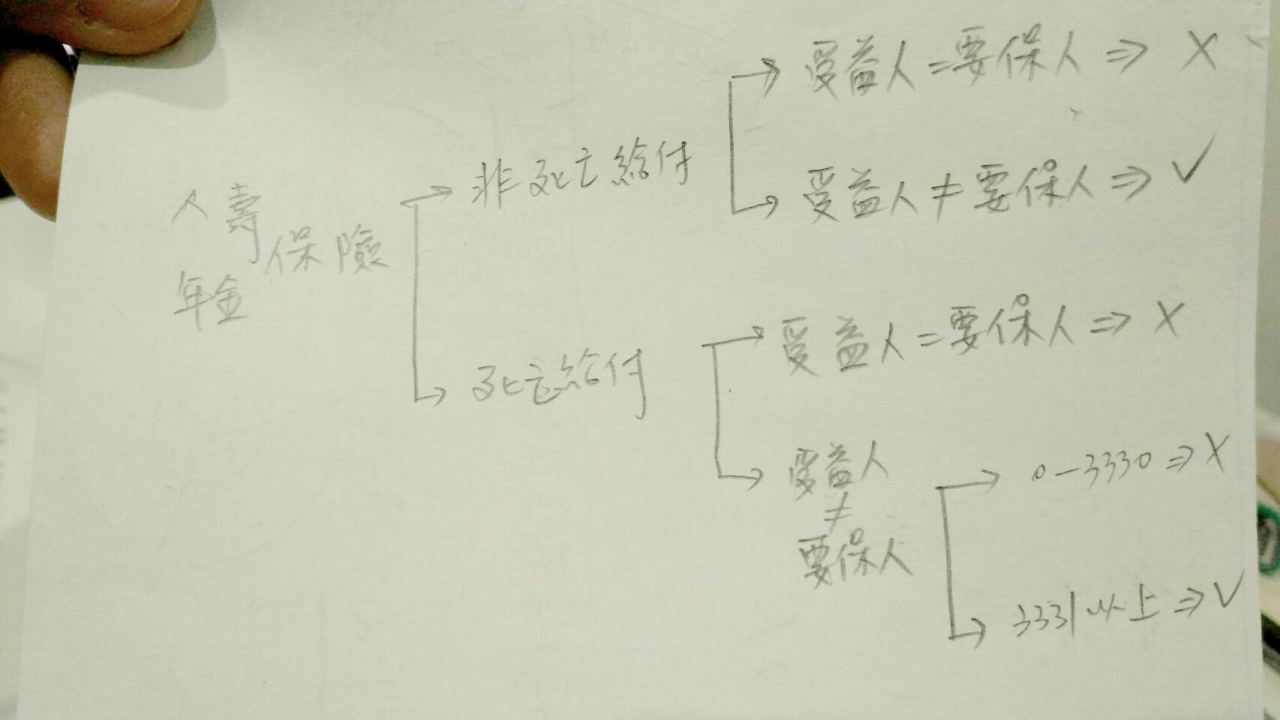 受益人=要保人⇒X
非死亡給付
受益人≠要保人⇒✓
人壽
年金
保險
受益人=要保人⇒X
死亡給付
受益人
≠
要保人
0-3330⇒X
3331以上⇒✓